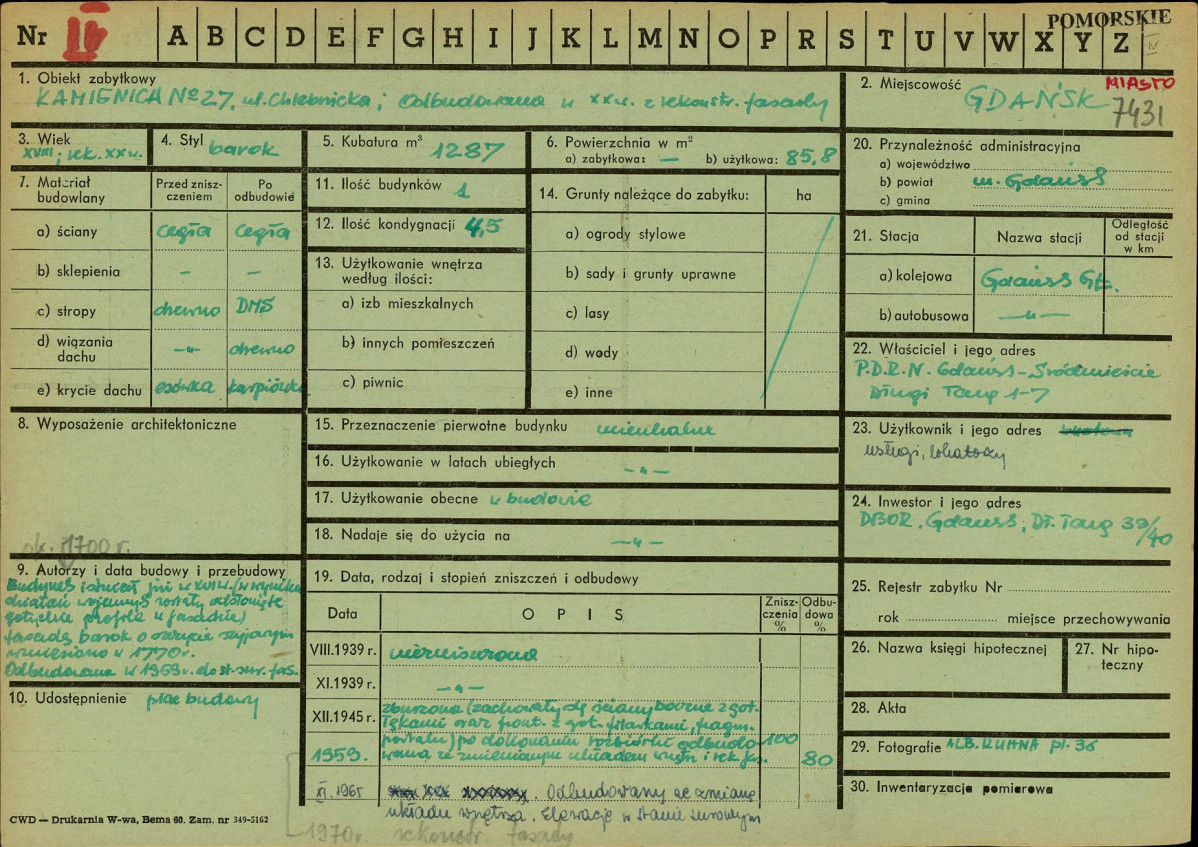 POMORSKIE
Nr II A B C D E F G H I J K L M N O P R S T U V W X Y Z
1. Obiekt zabytkowy
KAMIENICA No 27, ul. Chlebnicka; Odbudowana w XX w. z rekonstr. fasady
2. Miejscowość
MIASTO
GDAŃSK
7431
3. Wiek
XVIII; rek. XX w.
4. Styl barok
5. Kubatura m³ 1287
6. Powierzchnia w m²
a) zabytkowa: — b) użytkowa: 85,8
20. Przynależność administracyjna
a) województwo
b) powiat m. Gdańsk
c) gmina
7. Materiał budowlany
Przed znisz-
czeniem
Po
odbudowie
a) ściany cegła cegła
b) sklepienia – –
c) stropy drewno DMS
d) wiązania
dachu -„- drewno
e) krycie dachu esówka karpiówka
11. Ilość budynków 1
12. Ilość kondygnacji 4,5
13. Użytkowanie wnętrza
według ilości:
a) izb mieszkalnych
b) innych pomieszczeń
c) piwnic
14. Grunty należące do zabytku: ha
a) ogrody stylowe
b) sady i grunty uprawne
c) lasy
d) wody
e) inne
21. Stacja Nazwa stacji
Odległość
od stacji
w km
a) kolejowa Gdańsk Gł.
b) autobusowa —„—
22. Właściciel i jego adres
P.D.R.N. Gdańsk-Śródmieście
Długi Targ 1-7
8. Wyposażenie architektoniczne
15. Przeznaczenie pierwotne budynku mieszkalne
16. Użytkowanie w latach ubiegłych —„—
17. Użytkowanie obecne w budowie
18. Nadaje się do użycia na —„—
23. Użytkownik i jego adres
usługi, lokatorzy
24. Inwestor i jego adres
DBOR, Gdańsk, Dł. Targ 39/40
ok. 1700 r.
9. Autorzy i data budowy i przebudowy
Budynek istniał już w XVI w. (w wyniku
działań wojennych zostały odsłonięte
gotyckie profile w fasadzie)
fasadę barok o szczycie szyjowym
wzniesiono w 1770 r.
Odbudowana w 1959 r. do st. sur. fas.
10. Udostępnienie plac budowy
19. Data, rodzaj i stopień zniszczeń i odbudowy
Data OPIS
Znisz-
czenia
%
Odbu-
dowa
%
VIII.1939 r. niezniszczona
XI.1939 r. —„—
XII.1945 r. zburzona (zachowały się ściany boczne z got.
łękami oraz front. z got. filarkami, fragm.
portalu) po dokonaniu rozbiórki odbudo- 100
1959. wana ze zmienionym układem wnętrz i rek. fas. 80
XI.1965 Odbudowany ze zmianą
układu wnętrza. Elewacje w stanie surowym
1970 r. rekonstr. fasady
25. Rejestr zabytku Nr
rok miejsce przechowywania
26. Nazwa księgi hipotecznej
27. Nr hipo-
teczny
28. Akta
29. Fotografie ALB. KUHNA pl. 36
30. Inwentaryzacja pomiarowa
CWD — Drukarnia W-wa, Bema 60. Zam. nr 349-5162